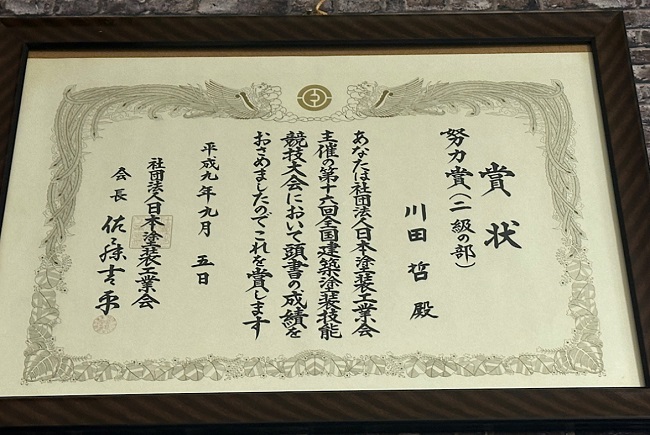 賞状
努力賞(二級の部)
川田哲殿
あなたは社団法人日本塗装工業会
主催の第十六回全国建築塗装技能
競技大会において頭書の成績を
おさめましたのでこれを賞します
平成九年九月五日
社団法人日本塗装工業会
会長 佐藤吉平